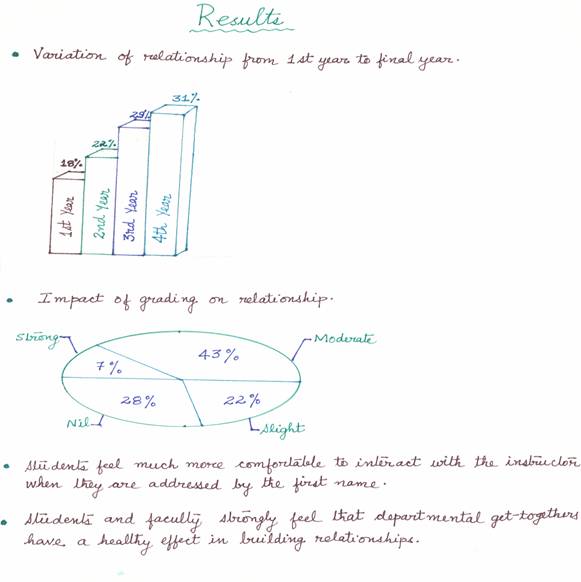 Results
• Variation of relationship from 1st year to final year.
31%
29%
22%
18%
1st Year
2nd Year
3rd Year
4th Year
• Impact of grading on relationship.
Strong
Moderate
43%
7%
28%
22%
Nil
Slight
• Students feel much more comfortable to interact with the instructor
when they are addressed by the first name.
• Students and faculty strongly feel that departmental get-togethers
have a healthy effect in building relationships.